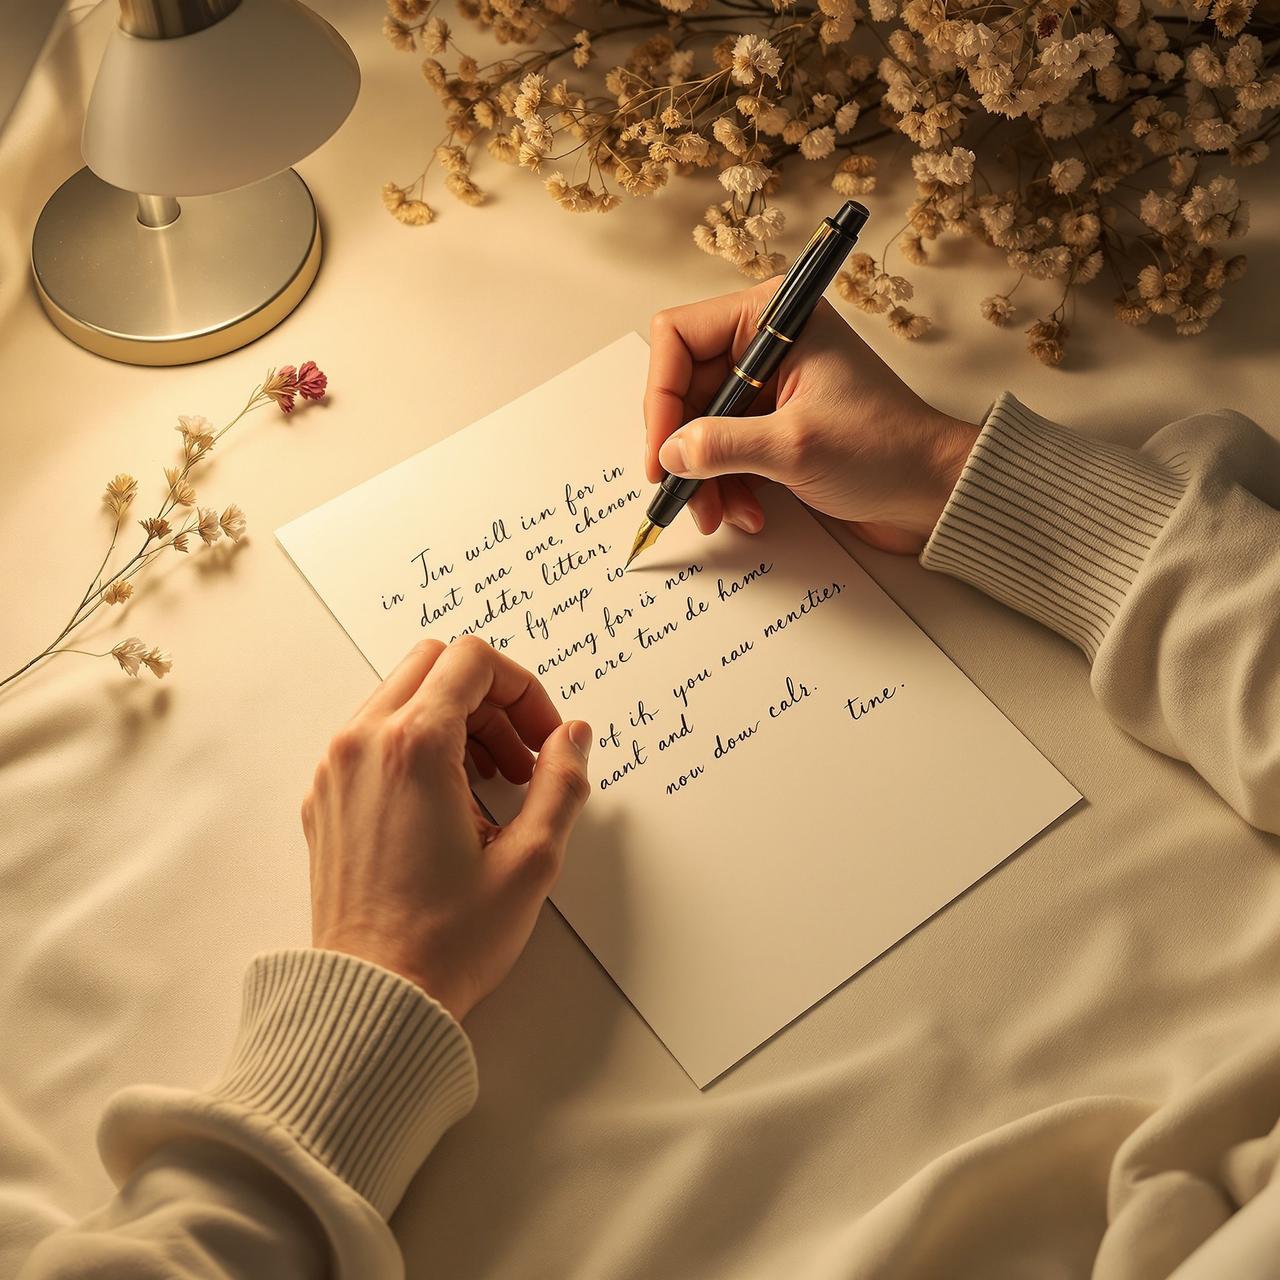 in Jin will iin for in
dant ana one, chenon
litterr
to fynup io
ariing for is nen
in are tnin de hame
of ih you nau meneties.
aant and
now dow calr.
tine.